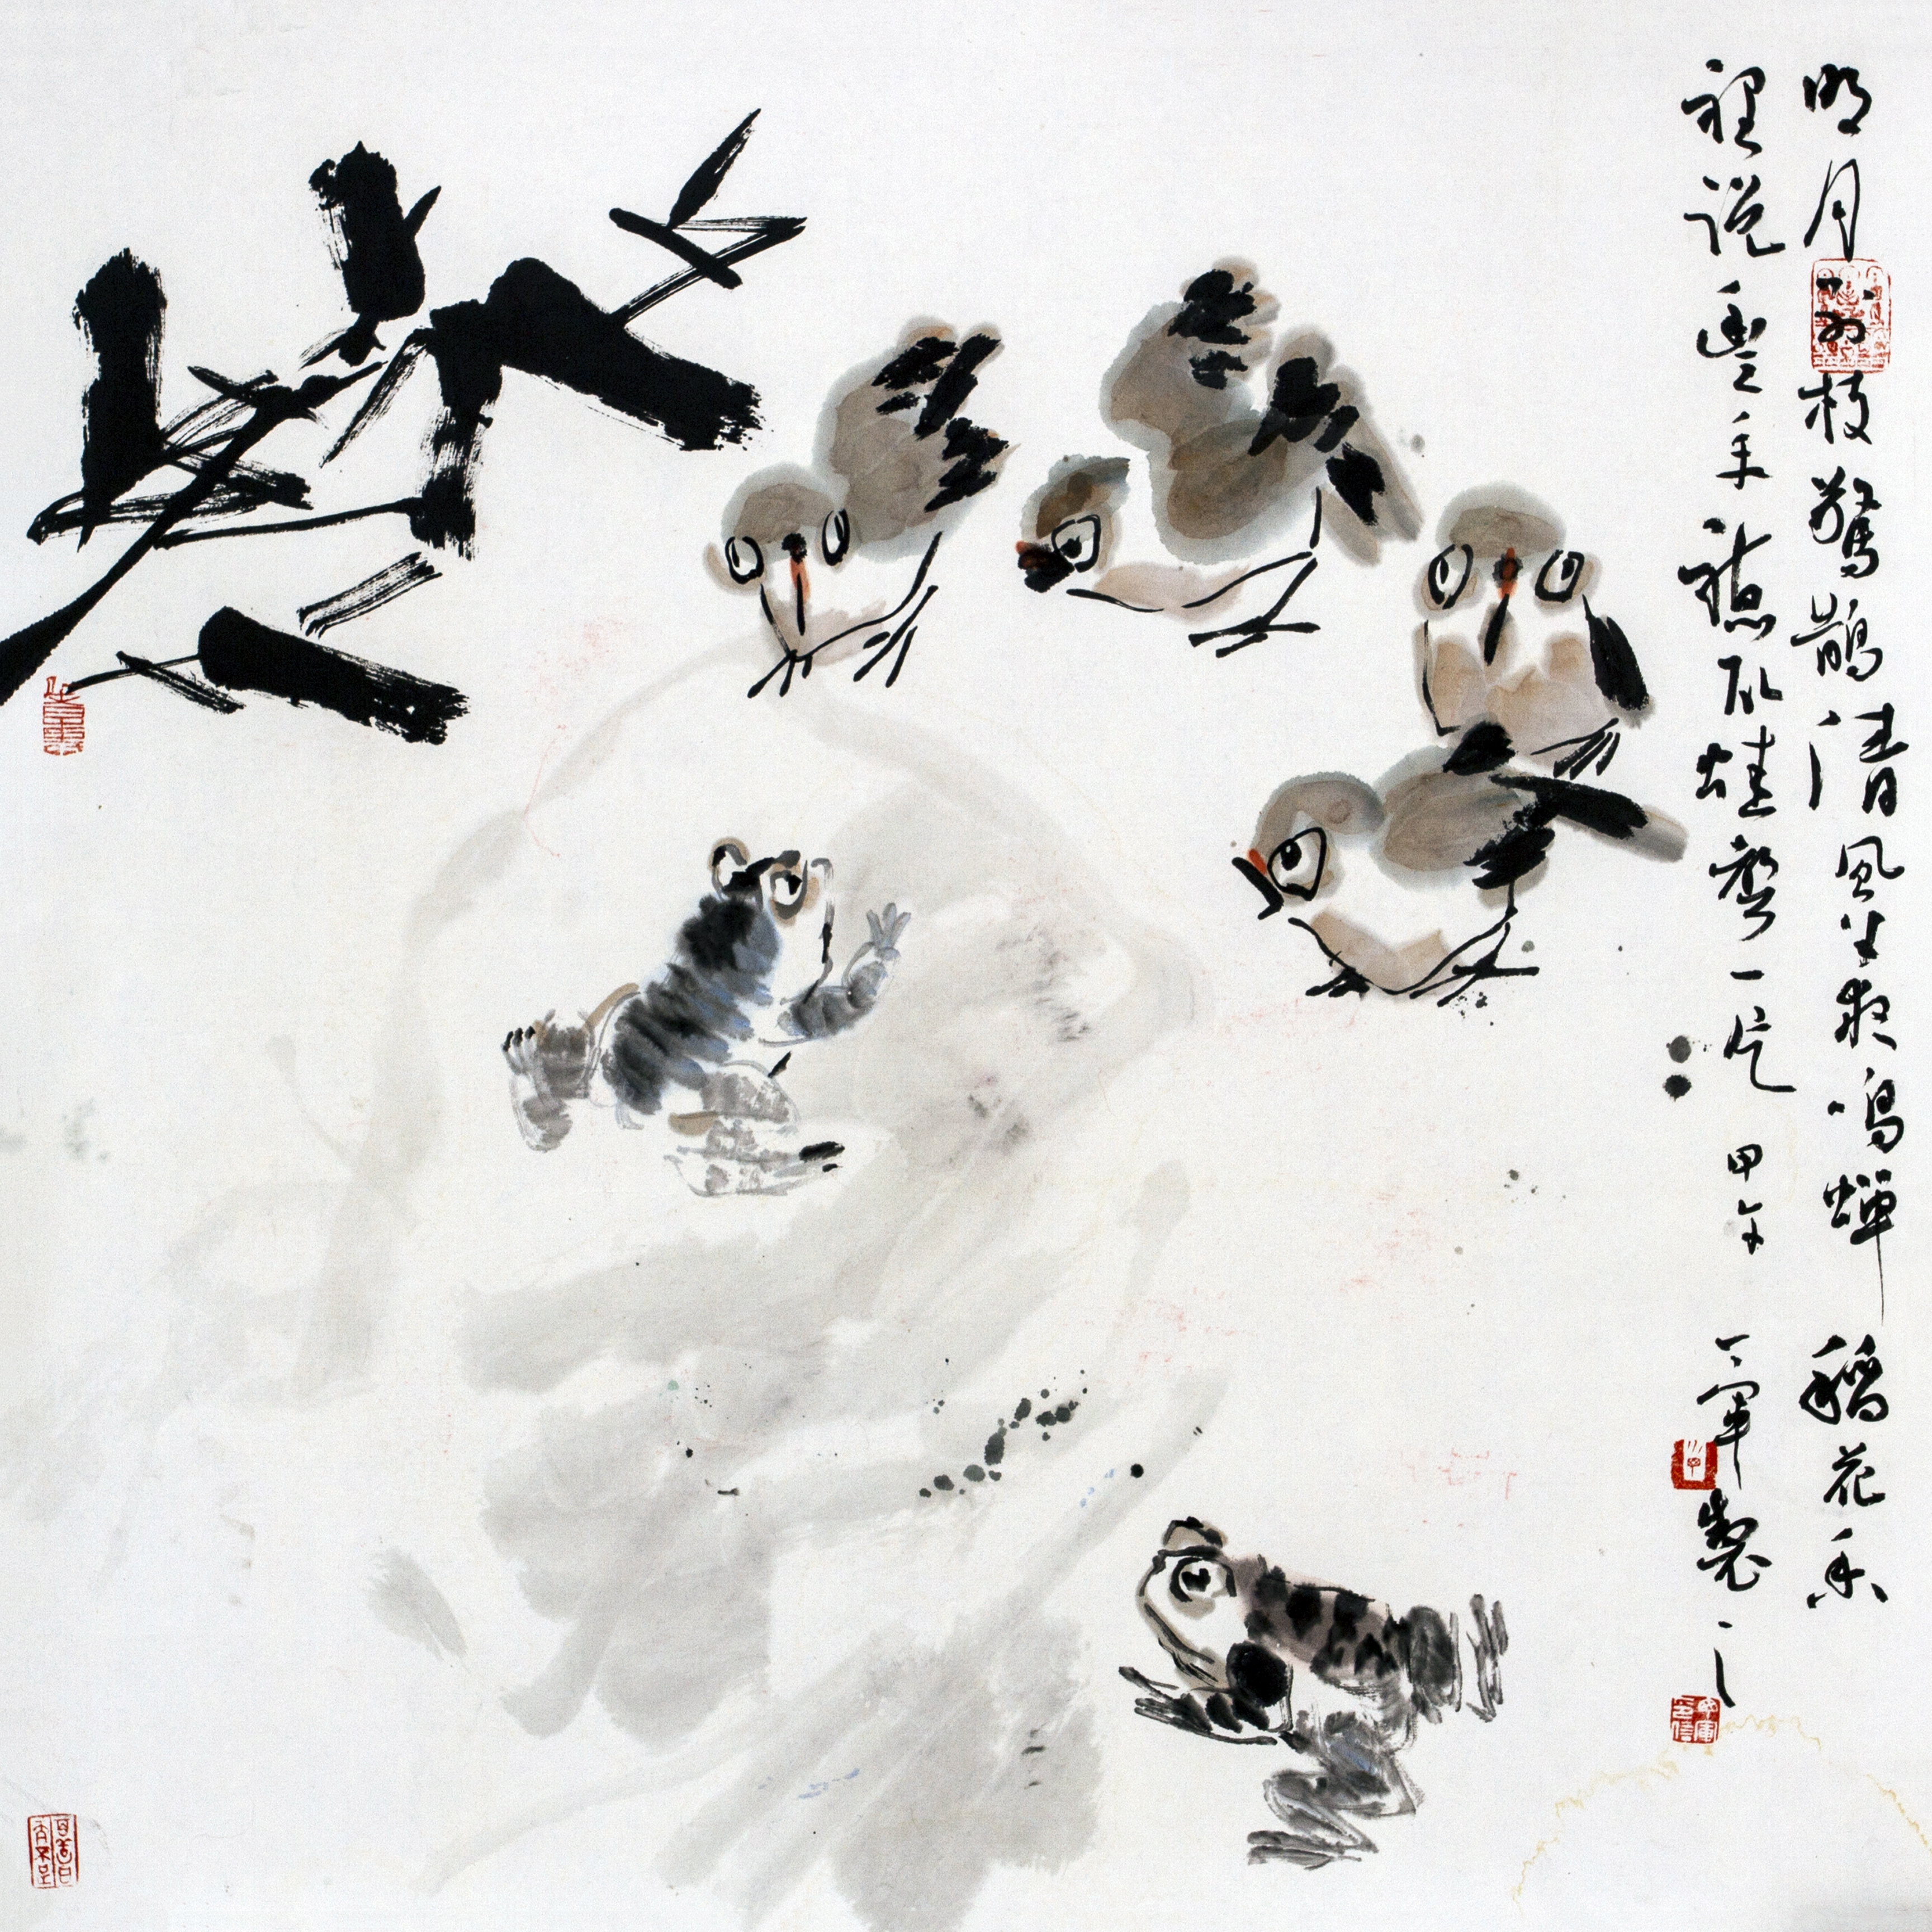 明月别枝驚鵲清風半夜鳴蟬稻花香
裡说豐年聽取蛙聲一片 甲午 軍製